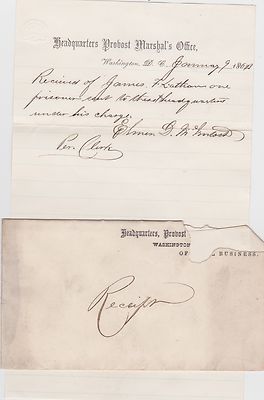 Headquarters Provost Marshal's Office,
Washington, D. C. January 9 1864
Received of James F Latham one
prisoner sent to these headquarters
under his charge.
Elmer D.
Per. Clerk
Headquarters, Provost
WASHINGTON
OF BUSINESS.
Receipt